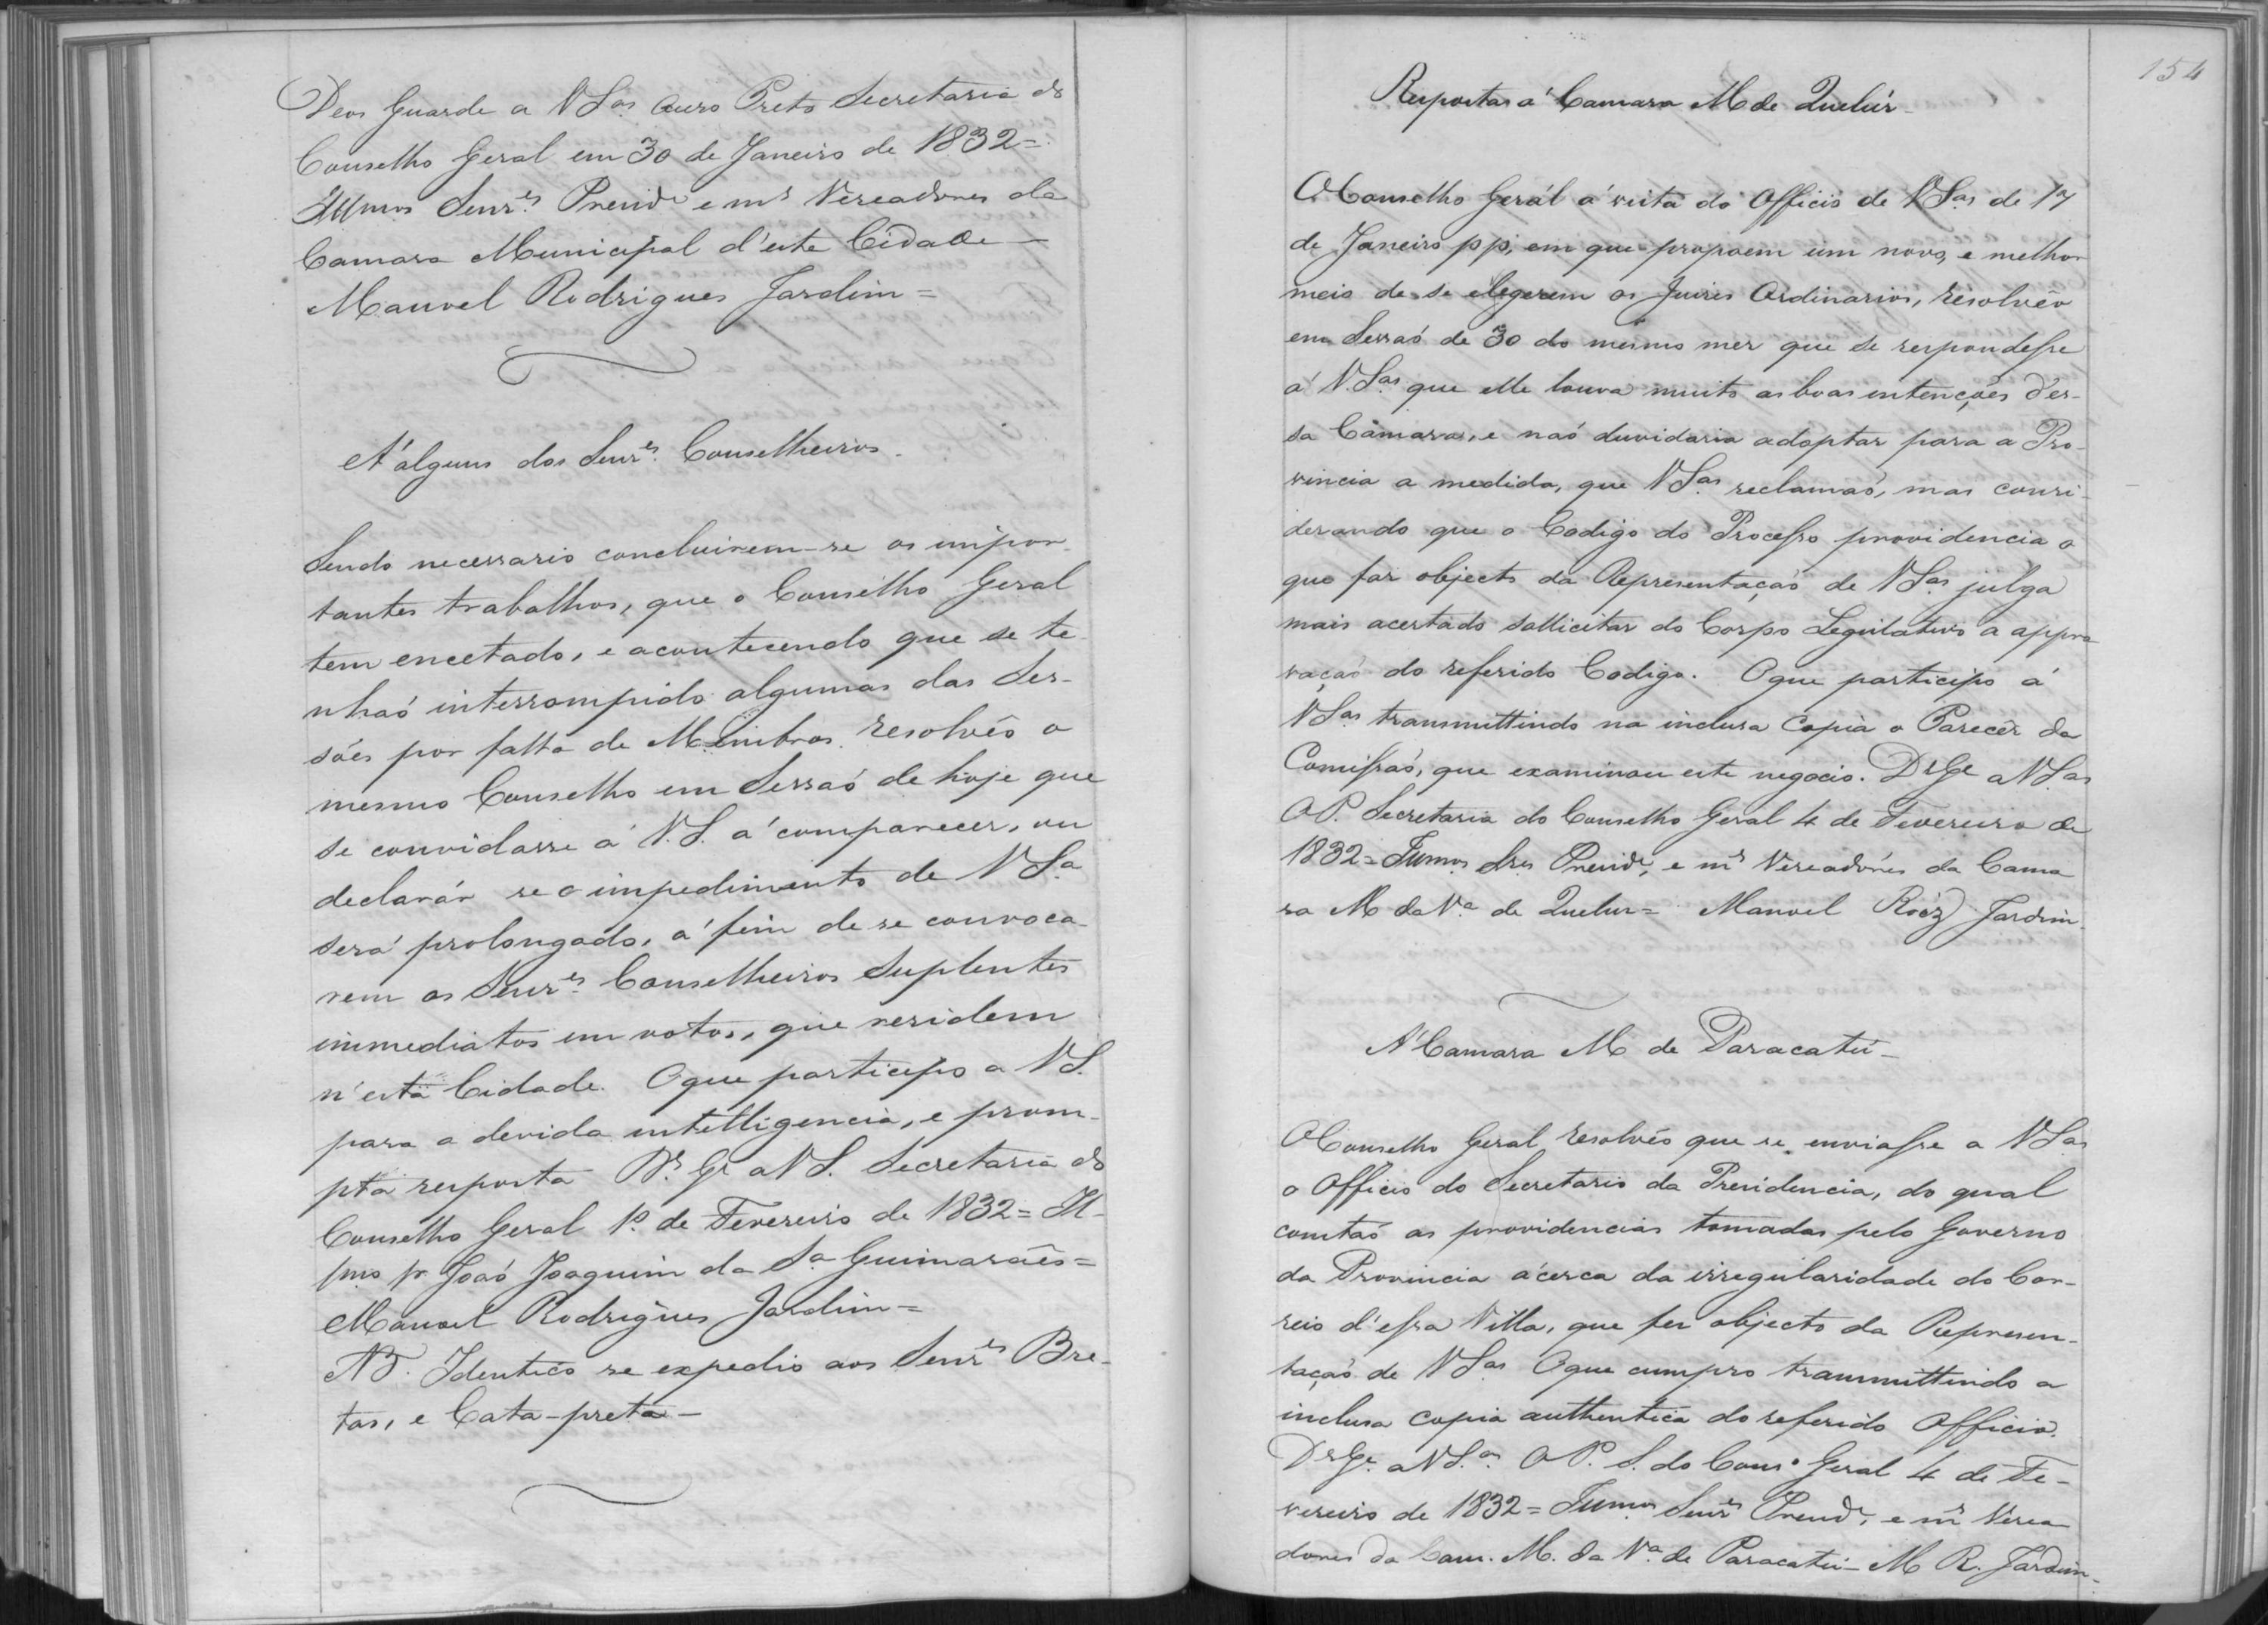 Deos Guarde a V Sas Ouro Preto Secretaria do
Conselho Geral em 30 de Janeiro de 1832=
Illmos Senres Preside e ms Vereadores da
Camara Municipal d'esta Cidade —
Manoel Rodrigues Jardim =
A' alguns dos Senres Conselheiros.
Sendo necessario concluirem-se os impor-
tantes trabalhos, que o Conselho Geral
tem encetado, e acontecendo que se te-
nhaó interrompido algumas das Ses-
sóes por falta de Membros resolvêo o
mesmo Conselho em Sessaó de hoje que
se convidasse á V. S. a' comparecer, ou
declarár se o impedimento de V Sa
será prolongado, a' fim de se convoca-
rem os Senres Conselheiros Suplentes
immediatos em votos, que residem
n'esta Cidade. O que participo a V S.
para a devida intelligencia, e prom-
pta resposta Ds Ge a V S. Secretaria do
Conselho Geral 1º de Fevereiro de 1832 = Il-
lmo Sr Joaó Joaquim da Sa Guimaraês =
Manoel Rodrigues Jardim =
NB. Identico se expedio aos Senres Bre-
tas, e Cata-preta —
154
Respostas á Camara M de Queluz
O Conselho Gerál á vista do Officio de V Sas de 17
de Janeiro p p, em que propoem um novo, e melhor
meio de se elegerem os Juizes Ordinarios, resolvêo
em Sessaó de 30 do mesmo mez que se respondesse
a' V. Sas que elle louva muito as boas intençóes d'es-
sa Câmara, e naó duvidaria adoptar para a Pro-
vincia a medida, que V Sas reclamaó, mas consi-
derando que o Codigo do Processo providencia o
que faz objecto da Representaçaó de V Sas julga
mais acertado sollicitar do Corpo Legislativo a appro-
vaçaó do referido Codigo. O que participo á
V Sas transmittindo na inclusa Copia o Parecêr da
Comissaó, que examinou este negocio. Ds Ge a V Sas
O P. Secretaria do Conselho Geral 4 de Fevereiro de
1832 = Illmos Sres Preside, e ms Vereadóres da Cama
ra M da Va de Queluz = Manoel Roiz Jardim
A' Camara M de Paracatú —
O Conselho Geral resolvêo que se enviasse a V Sas
o Officio do Secretario da Presidencia, do qual
constaó as providencias tomadas pelo Governo
da Provincia ácerca da irregularidade do Cor-
reio d'essa Villa, que fez objecto da Represen-
taçaó de V Sas O que cumpro transmittindo a
inclusa copia authentica do referido Officio.
Ds Ge a V S.as O P. S. do Conso Geral 4 de Fe-
vereiro de 1832 = Illmos Senres Preside, e ms Verea
dores da Cam. M. da Va de Paracatú — M R. Jardim —